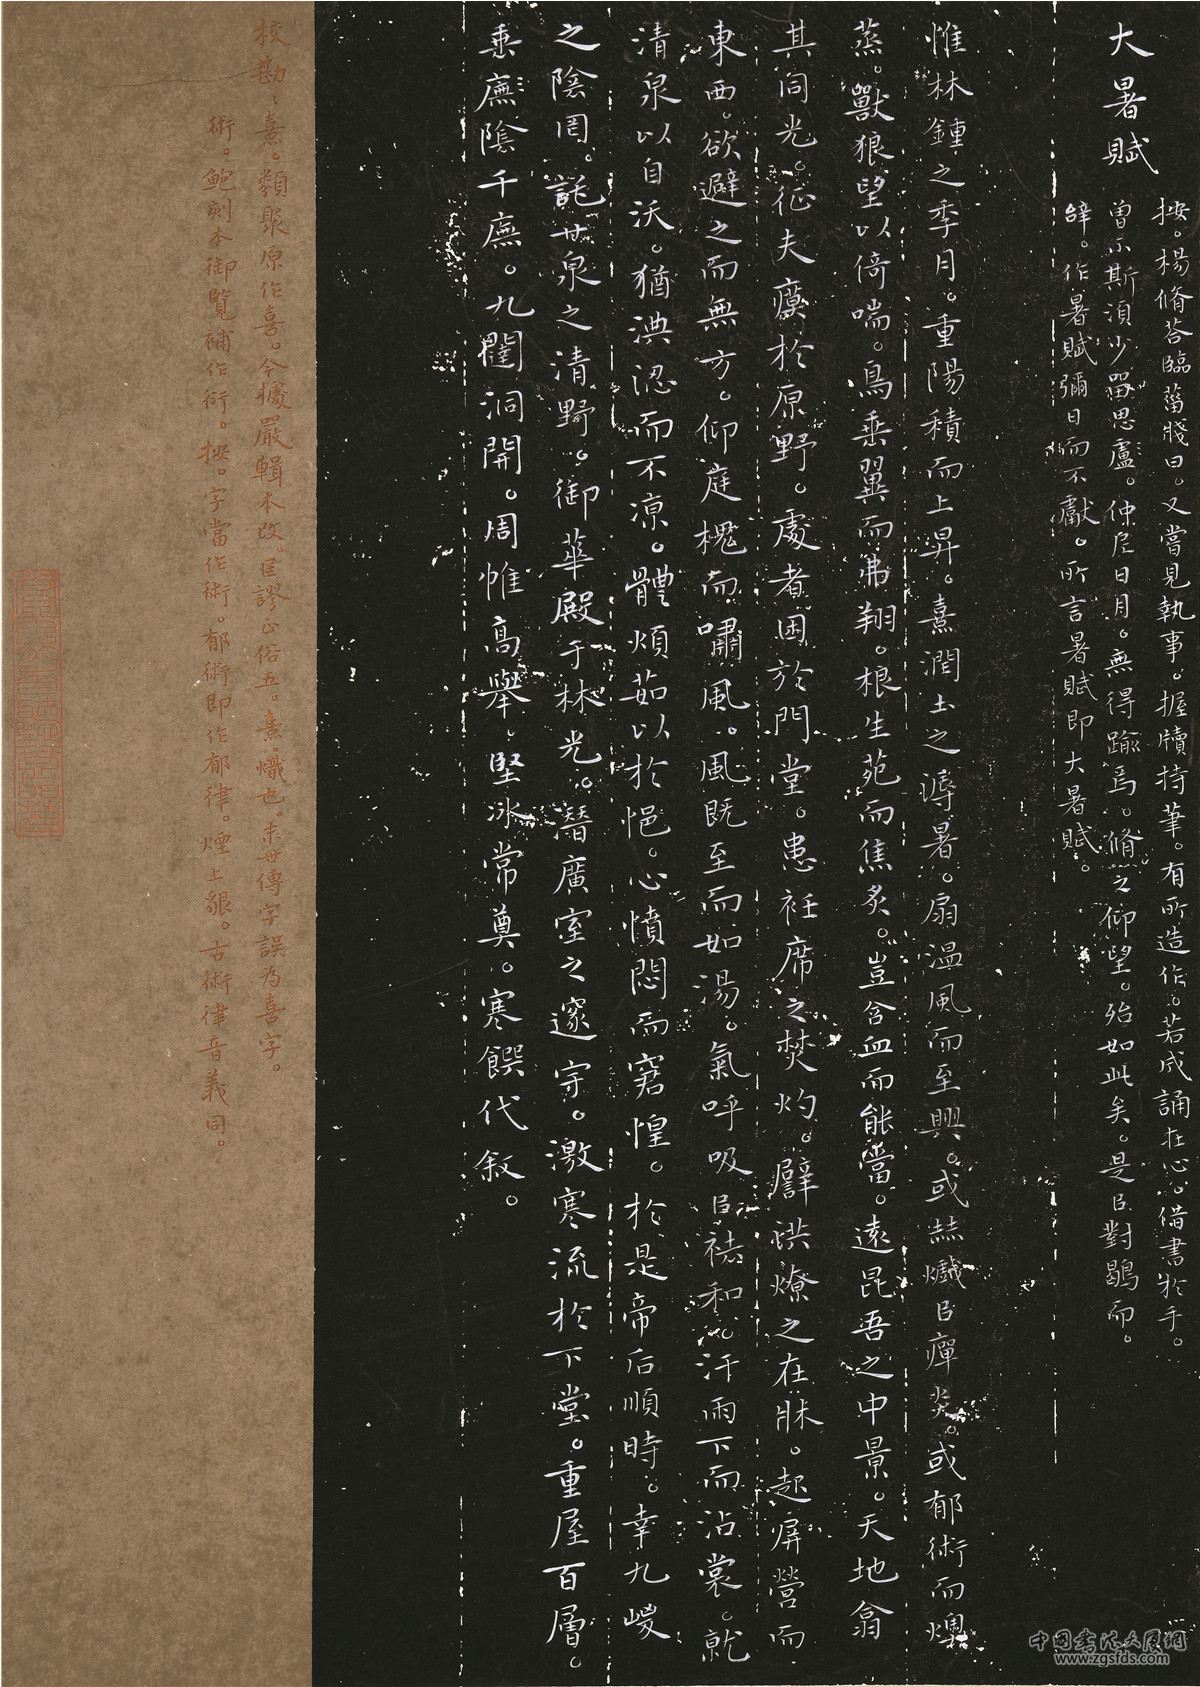 大暑賦
按。楊脩荅臨菑牋曰。又嘗見執事。握牘持筆。有所造作。若成誦在心。借書於手。
曾不斯湏少畱思慮。仲尼日月。無得踰焉。脩之仰望。殆如此矣。是㠯對鶡而
辝。作暑賦彌日而不獻。所言暑賦即大暑賦。
惟林鍾之季月。重陽積而上昇。熹潤土之溽暑。扇温風而至興。或赫爔㠯癉炎。或郁術而燠
蒸。獸狼望以倚喘。鳥垂翼而弗翔。根生苑而焦炙。豈含血而能當。遠昆吾之中景。天地翕
其同光。征夫瘼於原野。處者困於門堂。患衽席之焚灼。譬洪燎之在牀。起屏營而
東西。欲避之而無方。仰庭槐而嘯風。風既至而如湯。氣呼吸㠯祛和。汗雨下而沾裳。就
清泉以自沃。猶淟涊而不凉。體煩茹以於悒。心憤悶而窘惶。於是帝后順時。幸九嵕
之陰罔。託甘泉之清野。御華殿于林光。潛廣室之邃宇。激寒流於下堂。重屋百層。
垂廡陰千廡。九闥洞開。周惟高舉。堅冰常奠。寒饌代敘。
校勘、熹。類聚原作喜。今據嚴輯本改。匡謬正俗五。熹。熾也。末世傳字誤為喜字。
術。鮑刻本御覽補作衍。按。字當作術。郁術即作郁律。煙上皃。古術律音義同。
中国书法大图网
www.zgsfds.com